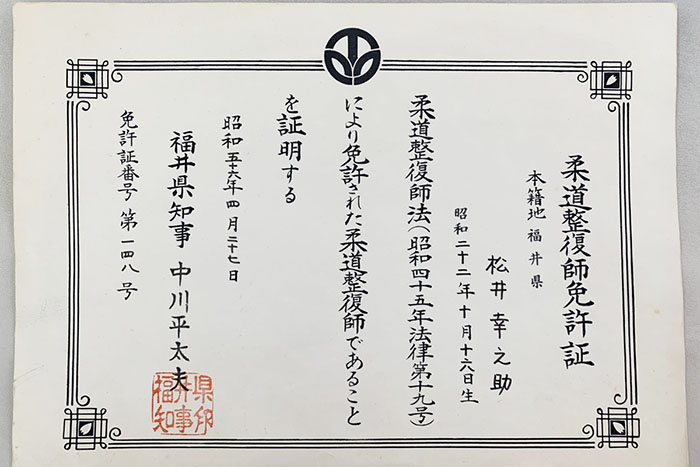 柔道整復師免許証
本籍地 福井県
松井幸之助
昭和二十二年十月十六日生
柔道整復師法(昭和四十五年法律第十九号)
により免許された柔道整復師であること
を証明する
昭和五十六年四月二十七日
福井県知事 中川平太夫
福井県知事印
免許証番号 第一四八号